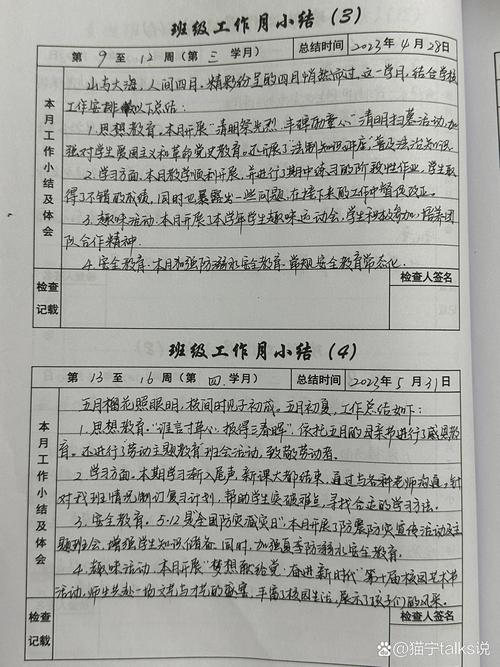 班级工作月小结（3）
第 9 至 12 周（第 三 学月） 总结时间 2023年4月28日
本月工作小结及体会
山与大海，人间四月，精彩纷呈的四月悄然而过，这一学月，结合学校
工作安排做以下总结：
1.思想教育。本月开展"清明祭先烈，丰碑励童心"清明扫墓活动，加
强对学生爱国主义和革命党史教育。还开展了"法制知识讲座"普及法治知识。
2.学习方面。本月教学顺利开展，并进行了期中练习的阶段性作业，学生取
得了不错的成绩，同时也暴露出一些问题，在接下来的工作中督促改正。
3.趣味活动。本月开展了本学年学生趣味运动会，学生积极参加，培养团
队合作精神。
4.安全教育。本月加强防溺水安全教育，常规安全教育常态化。
检查记载 检查人签名
班级工作月小结（4）
第 13 至 16 周（第 四 学月） 总结时间 2023年5月31日
本月工作小结及体会
五月榴花照眼明，枝间时见子初成。五月初夏，工作总结如下：
1.思想教育。"谁言寸草心，报得三春晖"，依托五月的母亲节进行了感恩教
育。还进行了劳动主题教育班会活动，致敬劳动者。
2.学习方面。本期学习渐入尾声，新课大都结束，通过与各种老师沟通，针
对我班情况制订复习计划，帮助学生突破难点，寻找合适的学习方法。
3.安全教育。5·12是"全国防灾减灾日"，本月开展了防震防灾宣传活动及主
题班会，增强学生知识储备。同时，加强夏季防溺水安全教育。
4.趣味活动。本月开展"梦想歌给党·奋进新时代"第十届校园艺术节
活动，师生共赴一场文艺与才艺的盛宴，丰富了校园生活，展示了孩子们的风采。
检查记载 检查人签名
猫宁talks说